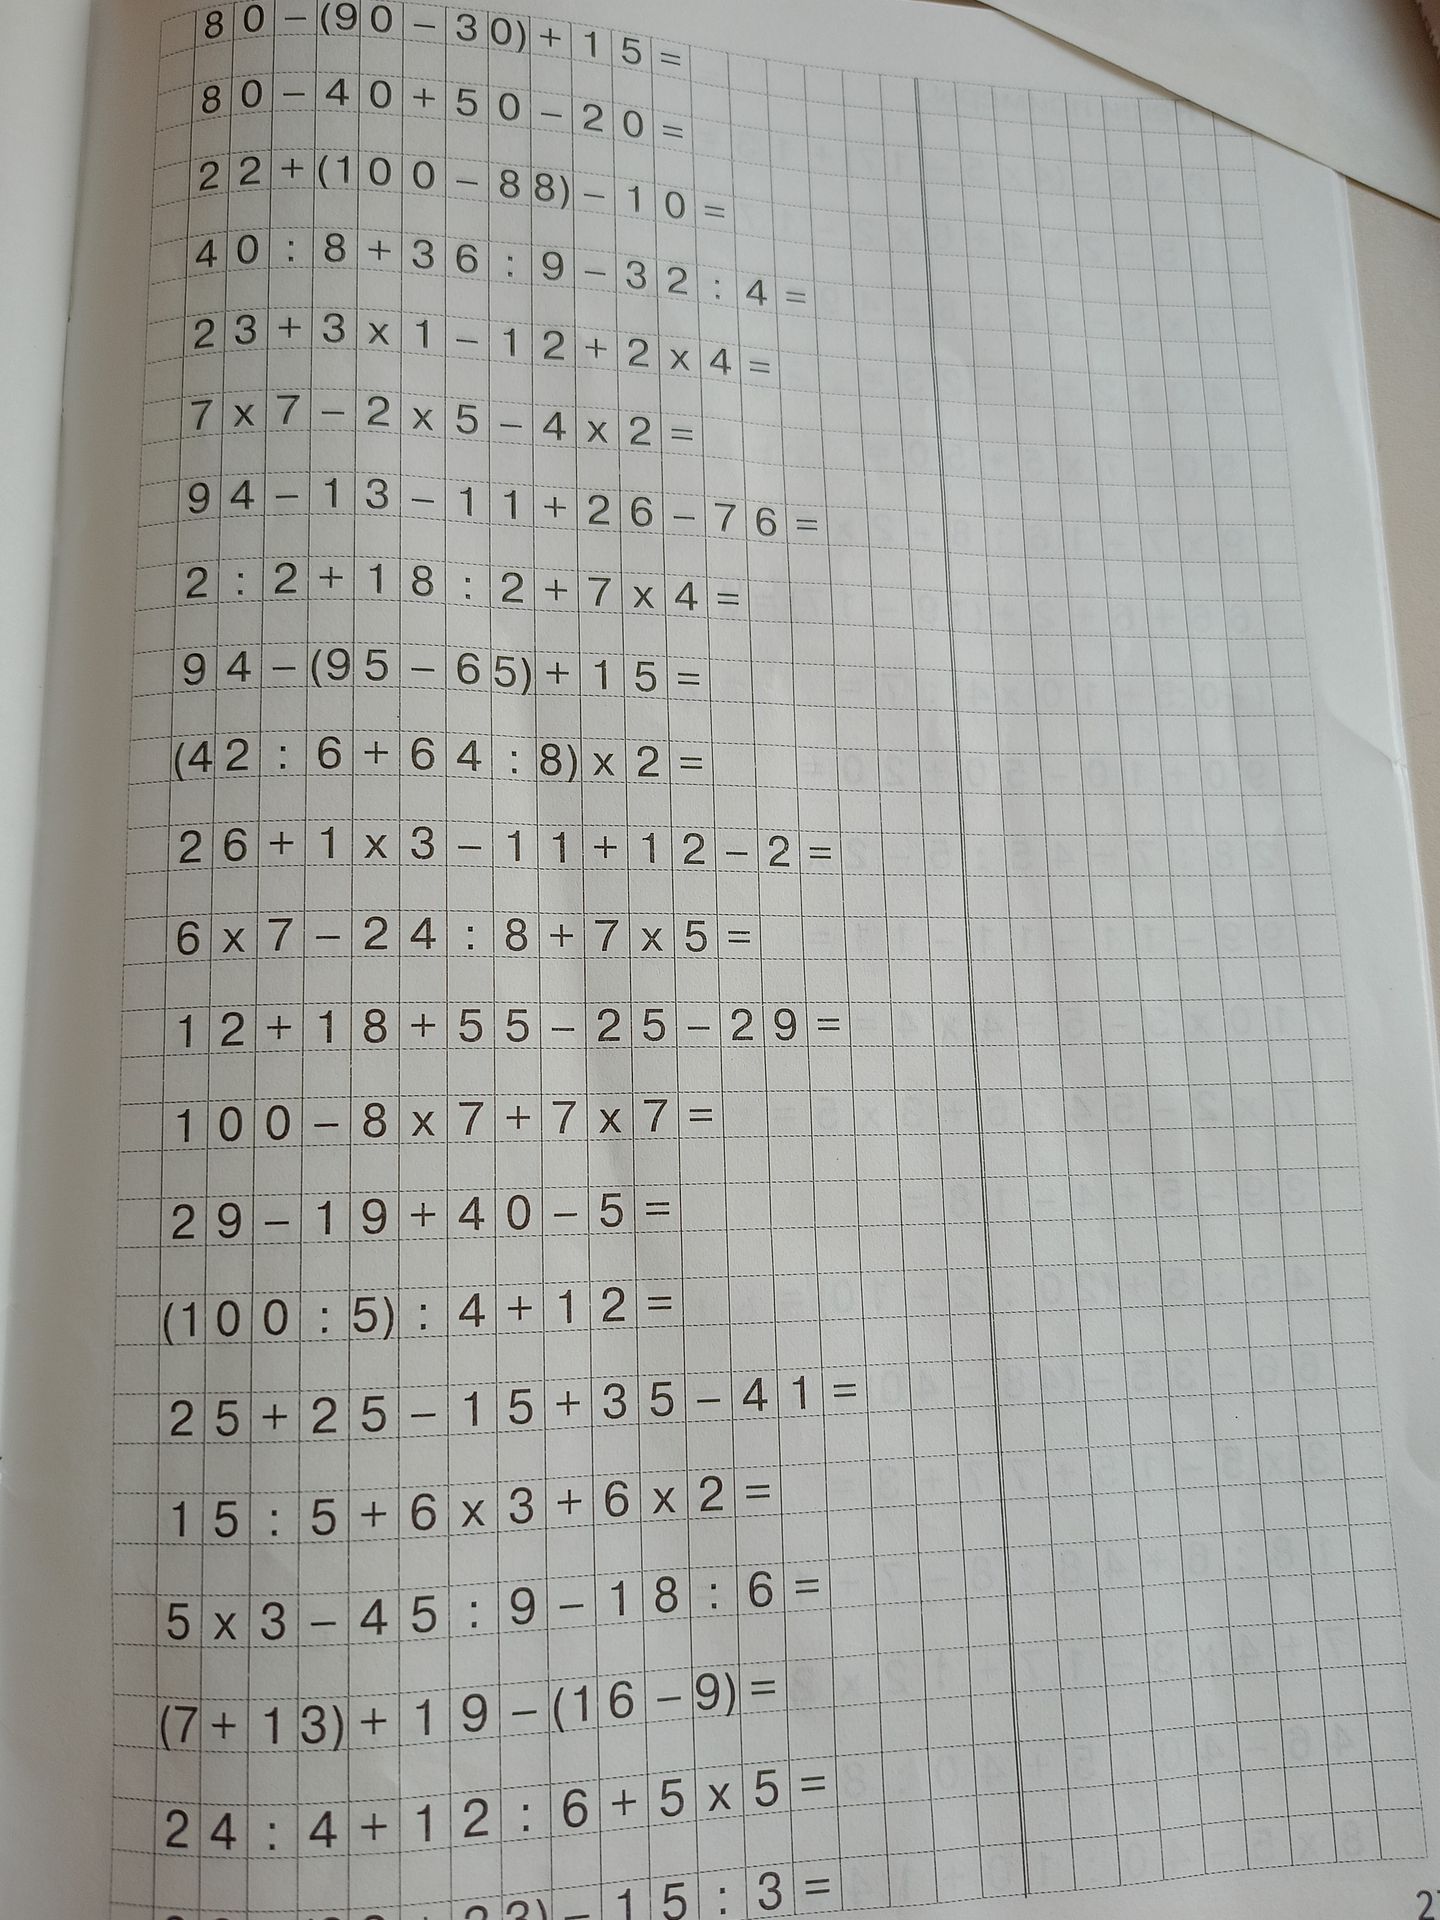 80-(90-30)+15=
80-40+50-20=
22+(100-88)-10=
40:8+36:9-32:4=
23+3x1-12+2x4=
7x7-2x5-4x2=
94-13-11+26-76=
2:2+18:2+7x4=
94-(95-65)+15=
(42:6+64:8)x2=
26+1x3-11+12-2=
6x7-24:8+7x5=
12+18+55-25-29=
100-8x7+7x7=
29-19+40-5=
(100:5):4+12=
25+25-15+35-41=
15:5+6x3+6x2=
5x3-45:9-18:6=
(7+13)+19-(16-9)=
24:4+12:6+5x5=
23)-15:3=